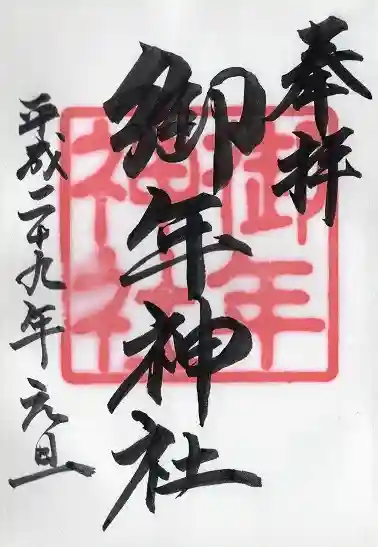 奉拝
御年神社
平成二十九年元旦
御年
神社